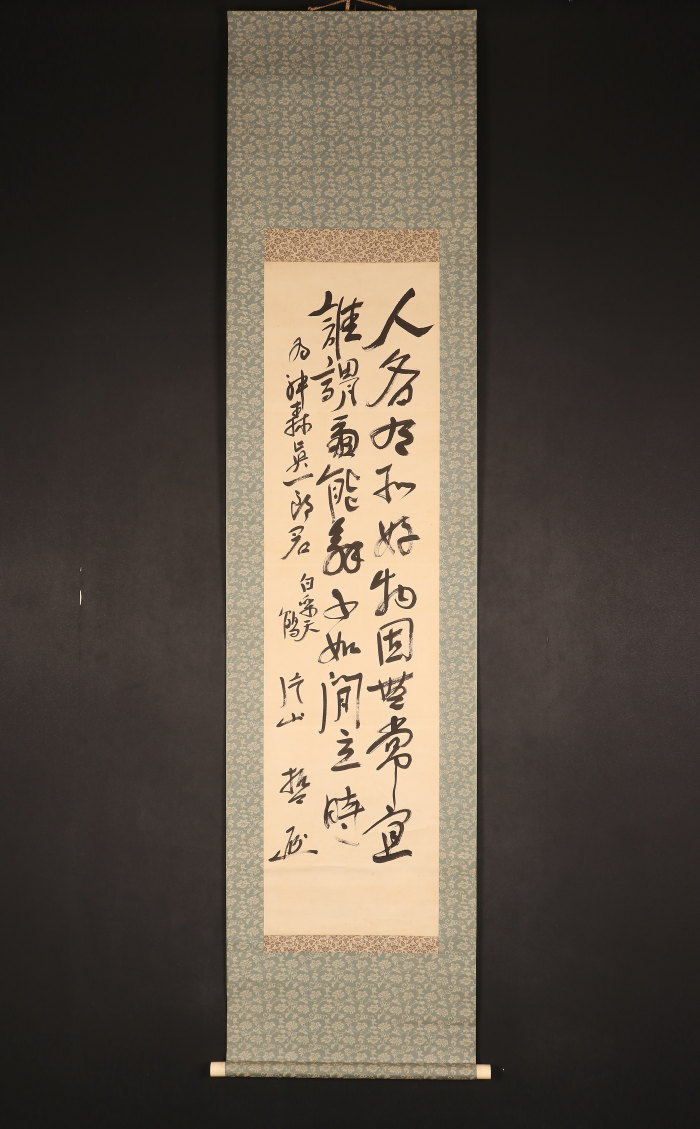 人各有所好物固無常宜
誰謂爾能舞不如閒立時
為 一郎君
白楽天
鶴
片山 哲